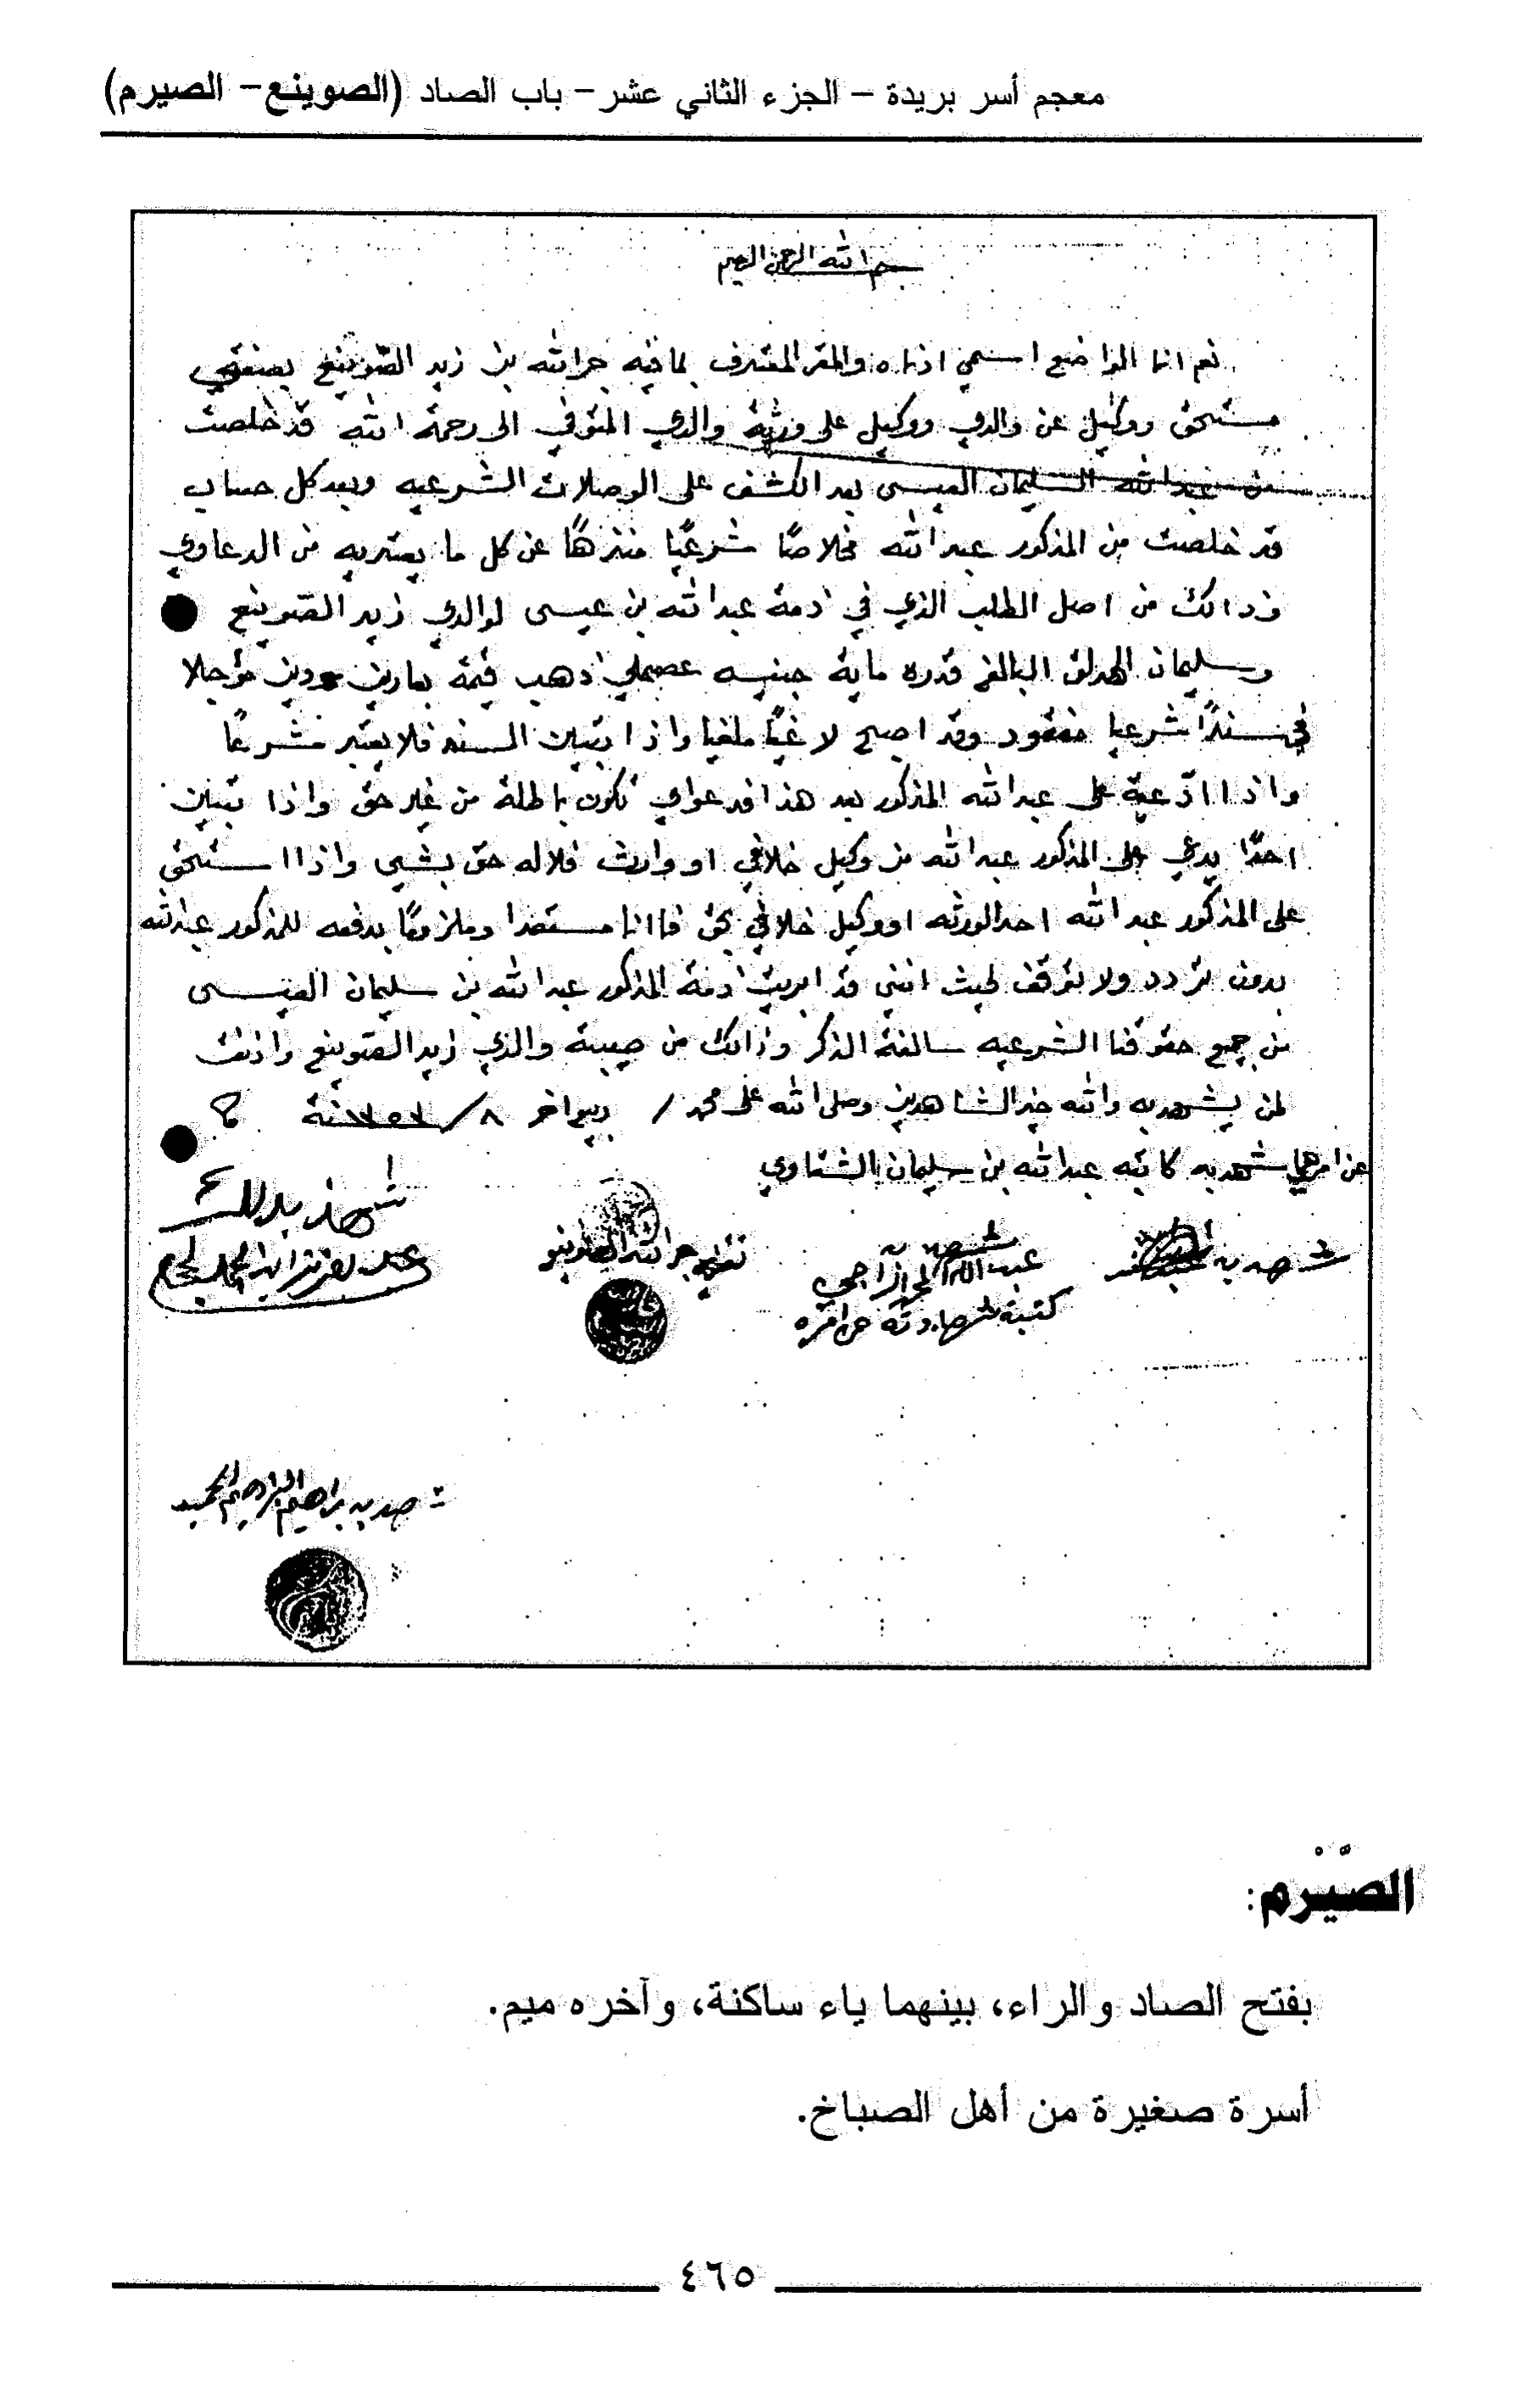 معجم أسر بريدة – الجزء الثاني عشر – باب الصاد (الصوينع – الصيرم)
بسم الله الرحمن الرحيم
نعم انا الواضع اسمي ادناه والمقر المعترف بما فيه جرالله بن زيد الصوينع بصفتي
مستحق ووكيل عن والدي ووكيل على ورثة والدي المتوفي الى رحمة الله قد خلصت
من عبدالله السليمان العيسى بعد الكشف على الوصلات الشرعيه وبعد كل حساب
قد خلصت من المذكور عبدالله خلاصًا شرعيًا منزهًا عن كل ما يعتريه من الدعاوي
وذالك من اصل الطلب الذي في ذمة عبدالله بن عيسى لوالدي زيد الصوينع
وسليمان الهدلق البالغ قدره ماية جنيه عصملي ذهب قيمة بعارين مؤجلا
في سندًا شرعيا مفقود وقد اصبح لاغيًا ملغيا واذا تبين السند فلا يعتبر شرعًا
واذا ادّعية على عبدالله المذكور بعد هذا فدعواي تكون باطلة من غير حق واذا تبين
احدًا يدعي على المذكور عبدالله من وكيل خلافي او وارث فلاله حق بشيى واذا استحق
على المذكور عبدالله احد الورثه او وكيل خلافي بحق فاانا مستعدا وملزومًا بدفعه للمذكور عبدالله
بدون تردد ولا توقف لحيث انني قد ابريت ذمة المذكور عبدالله بن سليمان العيسى
من جميع حقوقنا الشرعيه سالفة الذكر وذالك من صيبة والدي زيد الصوينع واذنت
لمن يشهد به والله خير الشاهدين وصلى الله على محمد / ربيع اخر ٨/ سنة
عن امرهم شهد به كاتبه عبدالله بن سليمان الشتاوي
شهد به
شهد به
عبدالله الجرالراجحي
كتبة شهادته عن امره
نعم جرالله الصوينع
اشهد بذلك
عبدالعزيز
شهد به ابراهيم البراهيم
الصَّيْرم:
بفتح الصاد والراء، بينهما ياء ساكنة، وآخره ميم.
أسرة صغيرة من أهل الصباخ.
٤٦٥